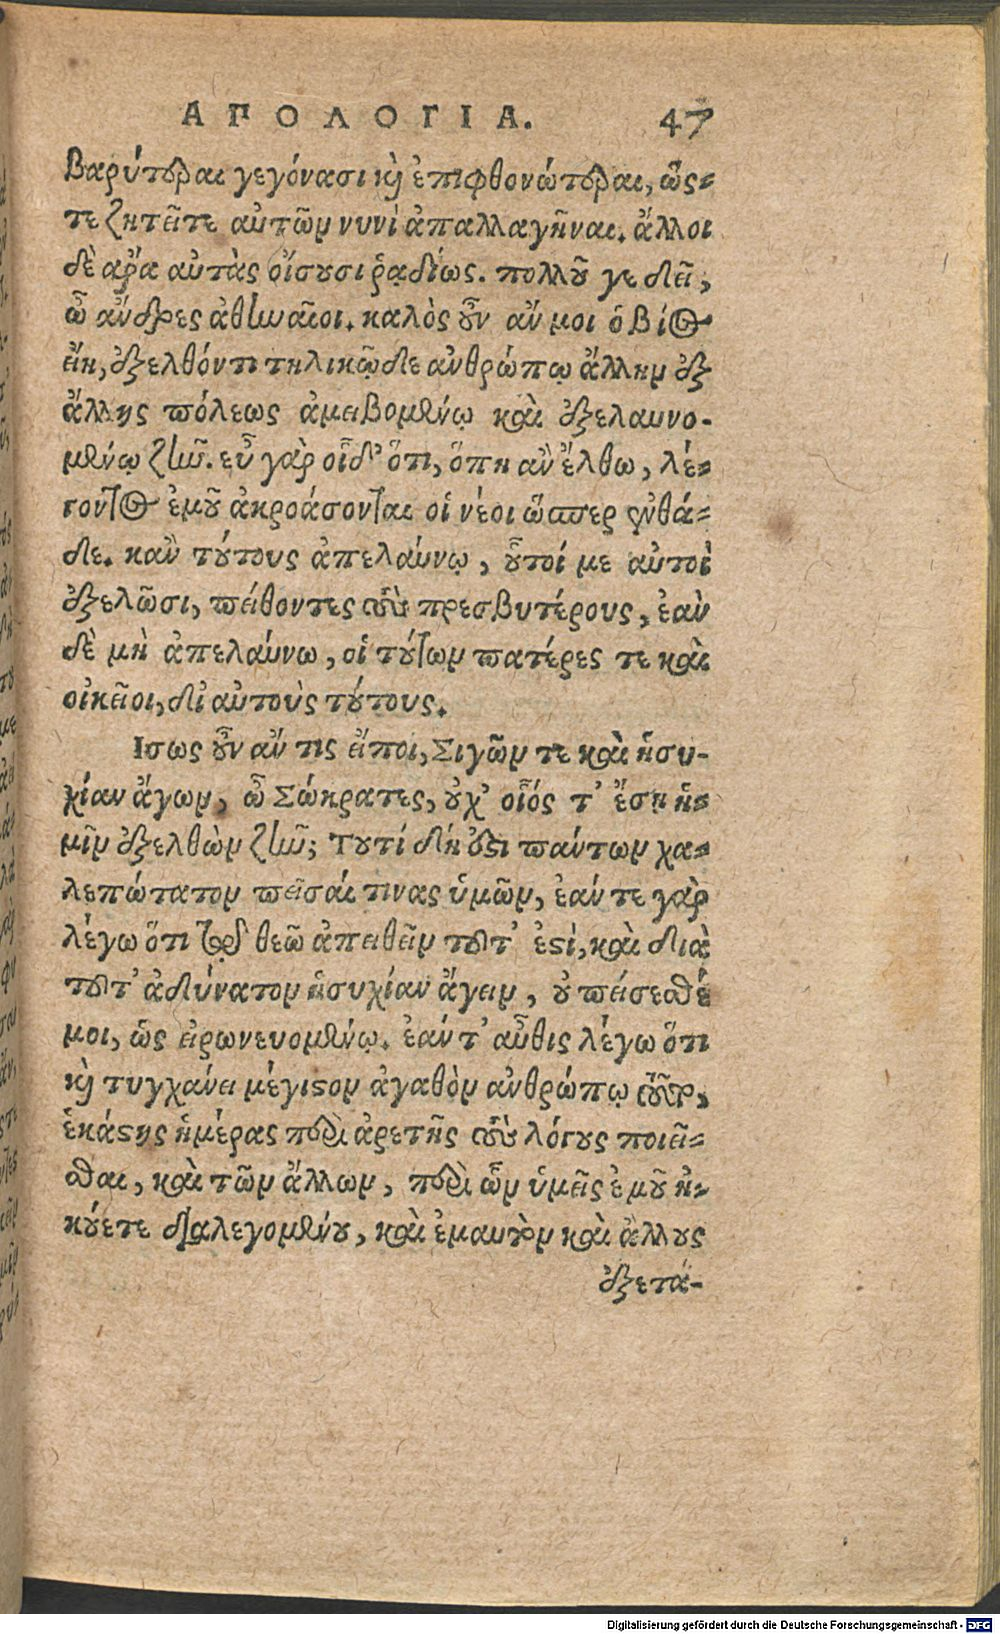 ΑΠΟΛΟΓΙΑ. 47
βαρύτεραι γεγόνασι καὶ ἐπιφθονώτεραι, ὥς-
τε ζητεῖτε αὐτῶν νυνὶ ἀπαλλαγῆναι. ἄλλοι
δὲ ἄρα αὐτὰς οἴσουσι ῥᾳδίως. πολλοῦ γε δεῖ,
ὦ ἄνδρες ἀθηναῖοι. καλὸς οὖν ἄν μοι ὁ βίος
εἴη, ἐξελθόντι τηλικῷδε ἀνθρώπῳ ἄλλην ἐξ
ἄλλης πόλεως ἀμειβομένῳ καὶ ἐξελαυνο-
μένῳ ζῆν. εὖ γὰρ οἶδ' ὅτι, ὅπη ἂν ἔλθω, λέ-
γοντος ἐμοῦ ἀκροάσονται οἱ νέοι ὥσπερ ἐνθά-
δε. κἂν τούτους ἀπελαύνω, οὗτοί με αὐτοὶ
ἐξελῶσι, πείθοντες τοὺς πρεσβυτέρους, ἐὰν
δὲ μὴ ἀπελαύνω, οἱ τούτων πατέρες τε καὶ
οἰκεῖοι, δι' αὐτοὺς τούτους.
Ισως οὖν ἄν τις εἴποι, Σιγῶν τε καὶ ἡσυ-
χίαν ἄγων, ὦ Σώκρατες, οὐχ' οἷός τ' ἔσῃ ἡ-
μῖν ἐξελθὼν ζῆν; Τουτί δή ἐστι πάντων χα-
λεπώτατον πεῖσαί τινας ὑμῶν, ἐάν τε γὰρ
λέγω ὅτι τῷ θεῷ ἀπειθεῖν τοῦτ' ἐστί, καὶ διὰ
τοῦτ' ἀδύνατον ἡσυχίαν ἄγειν, οὐ πείσεσθέ
μοι, ὡς εἰρωνευομένῳ. ἐάν τ' αὖθις λέγω ὅτι
καὶ τυγχάνει μέγιστον ἀγαθὸν ἀνθρώπῳ ὂν τοῦτο,
ἑκάστης ἡμέρας περὶ ἀρετῆς τοὺς λόγους ποιεῖ-
σθαι, καὶ τῶν ἄλλων, περὶ ὧν ὑμεῖς ἐμοῦ ἠ-
κούετε διαλεγομένου, καὶ ἐμαυτὸν καὶ ἄλλους
ἐξετά-
Digitalisierung gefördert durch die Deutsche Forschungsgemeinschaft - DFG